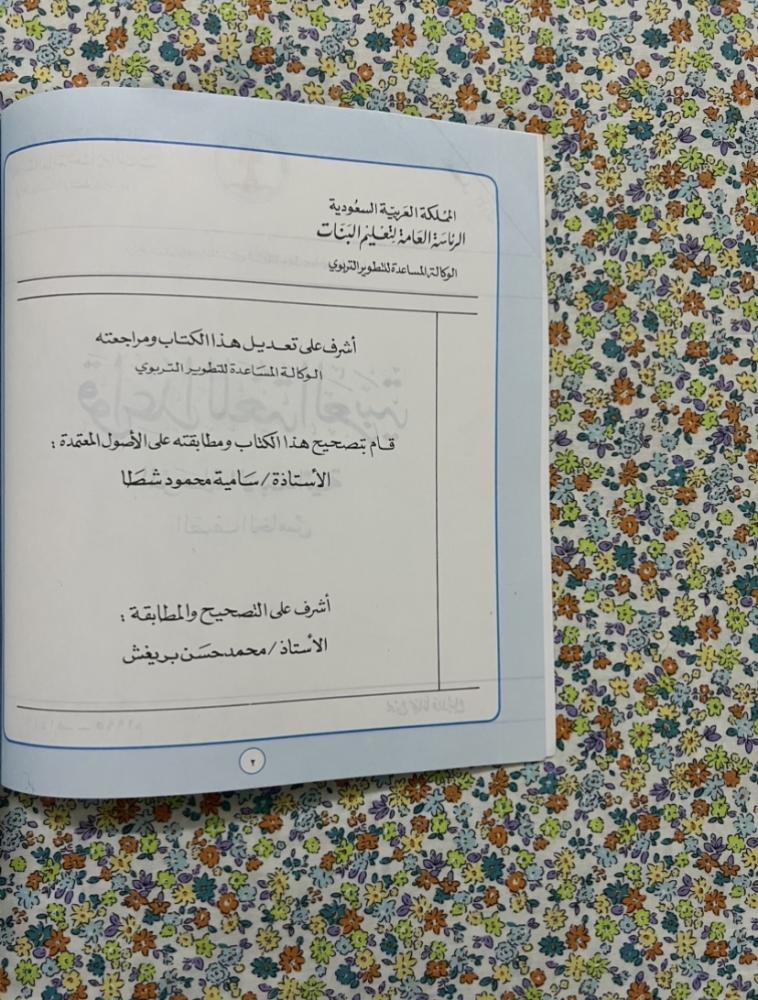 المملكة العربيّة السعُودية
الرئاسَة العامة لتعليم البَنات
الوكالة المساعدة للتطوير التربوي
أشرف على تعديل هذا الكتاب ومراجعته
الوكالة المسَاعدة للتطوير التربوي
قام بتصحيح هذا الكتاب ومطابقته على الأصول المعتمدة :
الأستاذة / سَامية محمود شطَا
أشرف على التصحيح والمطابقة :
الأستاذ / محمد حسَن بريغش
٢